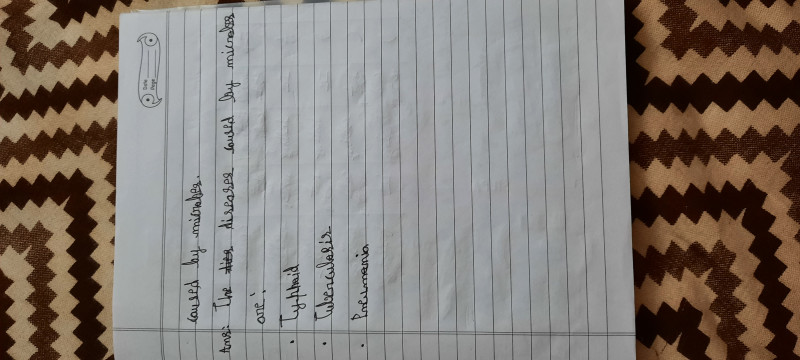 Date
Page
caused by microbes.
Ans: The diseases caused by microbes
are:
• Typhoid
• Tuberculosis
• Pneumonia